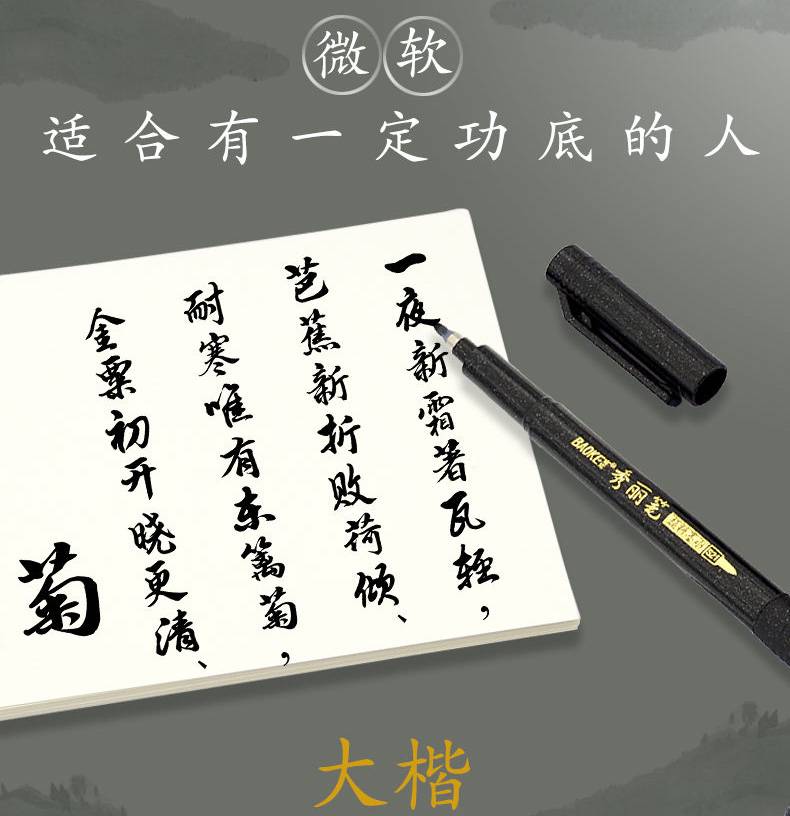 微软
适合有一定功底的人
一夜新霜著瓦轻，
芭蕉新折败荷倾、
耐寒唯有东篱菊，
金粟初开晓更清、
菊
BAOKE 秀丽笔
大楷